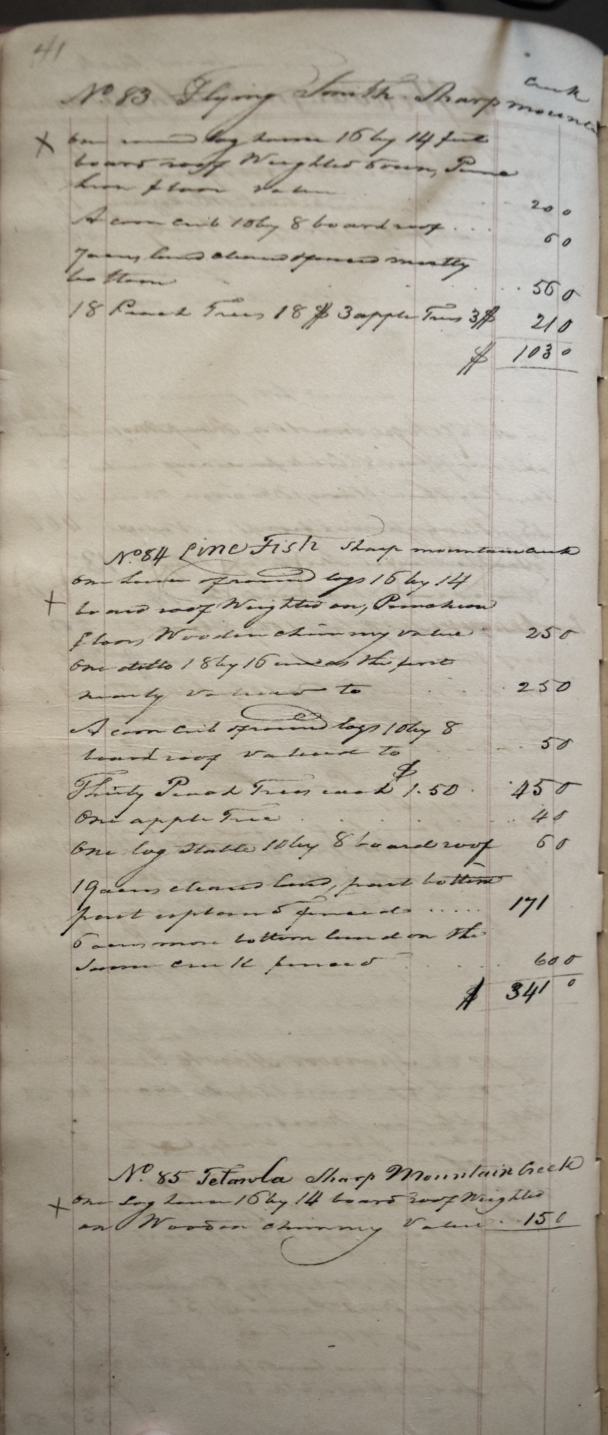 41
creek
No. 83 Flying Smith Sharp mountain
X One round log house 16 by 14 feet
board roof Weighted down, Punc
heon floor value 20 0
A corn crib 10 by 8 board roof .... 6 0
7 acres land cleared fenced mostly
bottom . . . 56 0
18 Peach Trees 18 $ 3 apple Trees 3 $ 21 0
$ 103 0
No. 84 Fish Sharp mountain creek
One house of round logs 16 by 14
+ board roof Weighted on, Puncheon
floor, Wooden chimney value 25 0
One ditto 18 by 16 as the first
nearly valued to . . . 25 0
A corn crib of round logs 10 by 8
board roof valued to . . 5 0
Thirty Peach Trees each $ 1.50 . 45 0
One apple Tree . . . 4 0
One log Stable 10 by 8 board roof 6 0
19 acres cleared land, part bottom
part upland & fenced ..... 171
6 acres more bottom land on the
Same creek fenced . . . 60 0
$ 341 0
No. 85 Sharp Mountain Creek
+ One Log house 16 by 14 board roof Weighted
on Wooden chimney Value . . 15 0